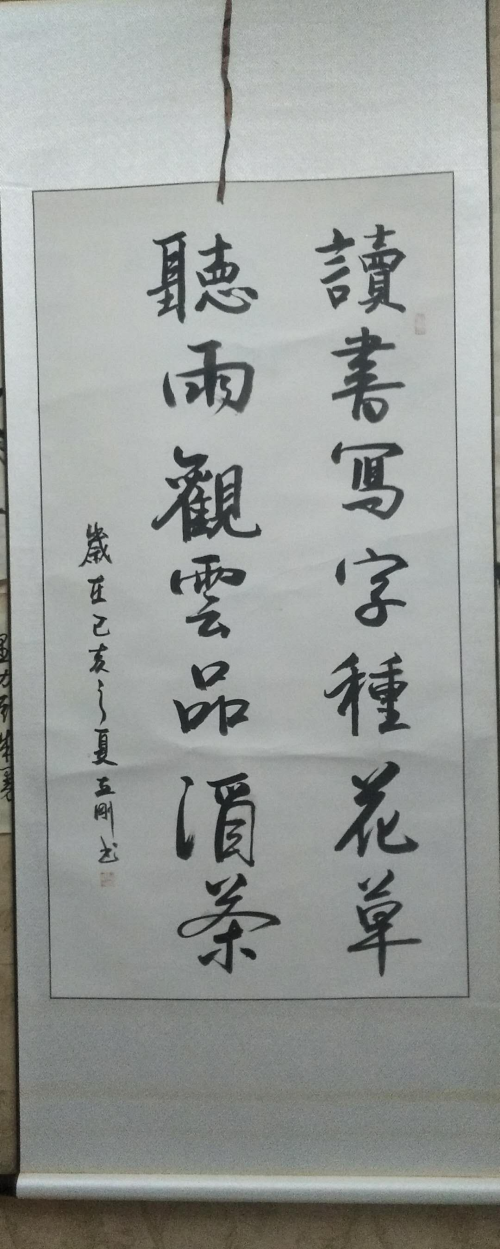 讀書寫字種花草
聽雨觀雲品酒茶
歲在己亥之夏 剛书